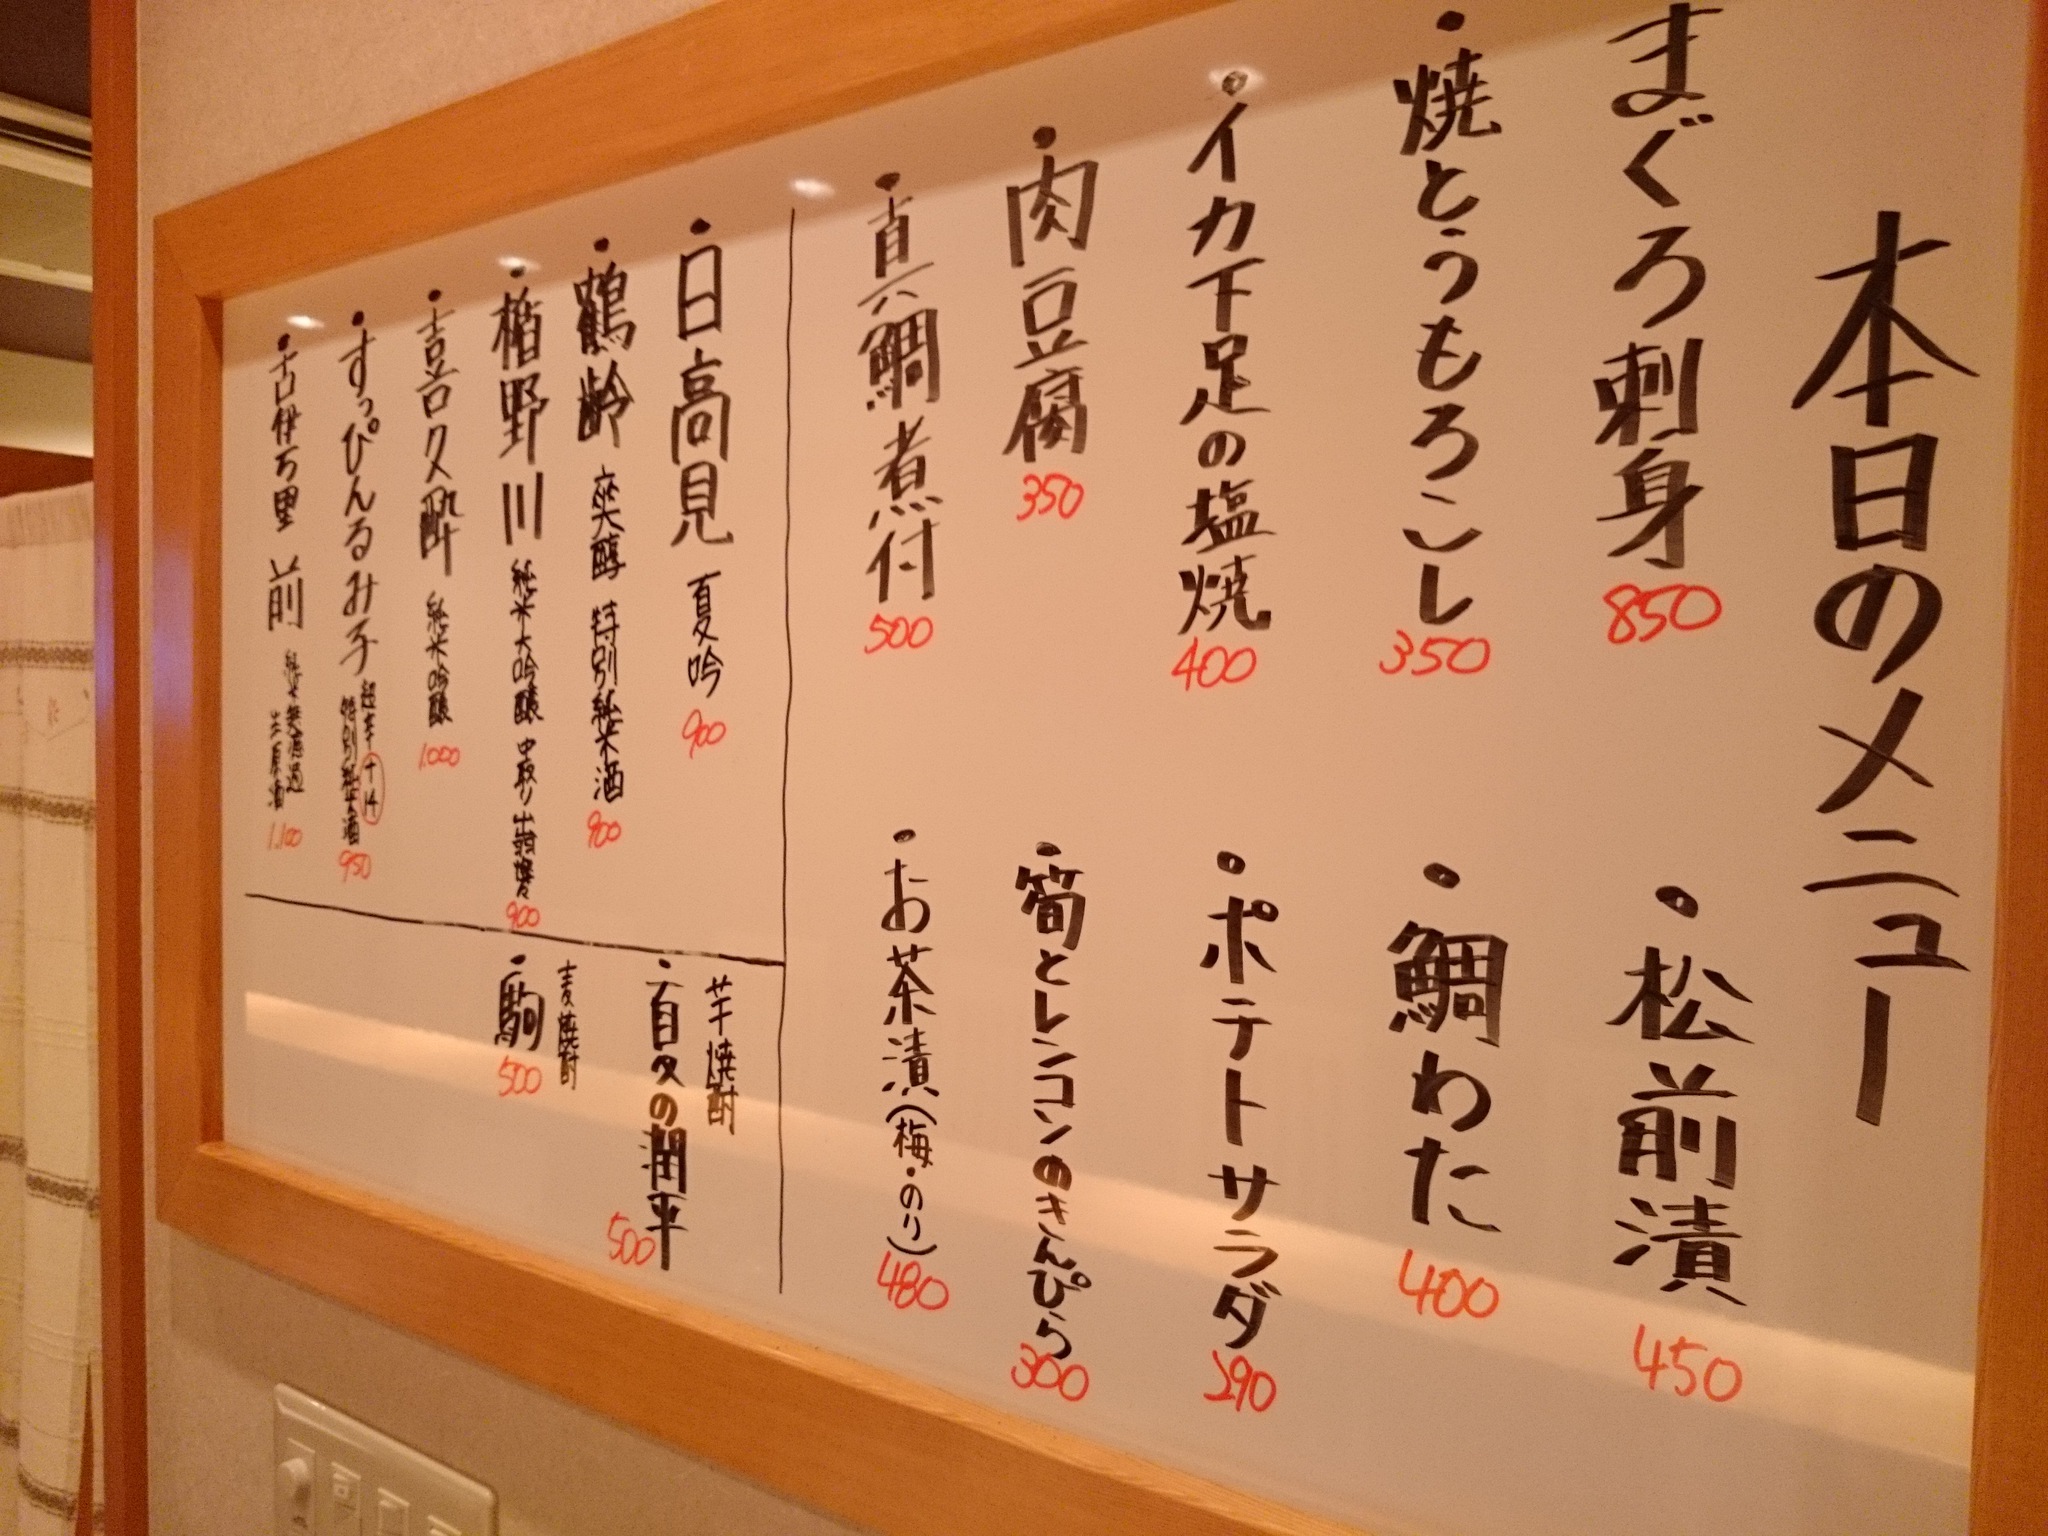 本日のメニュー
まぐろ刺身 850
・焼とうもろこし 350
・イカ下足の塩焼 400
・肉豆腐 350
・真鯛煮付 500
・松前漬 450
・鯛わた 400
・ポテトサラダ 290
・筍とレンコンのきんぴら 300
・お茶漬(梅・のり) 480
・日高見 夏吟 900
・鶴齢 爽醇 特別純米酒 900
・楯野川 純米大吟醸 中取り 出羽燦々 900
・喜久酔 純米吟醸 1.000
・すっぴんるみ子 超辛+14 特別純米酒 950
・古伊万里 前 純米無濾過生原酒 1.100
芋焼酎
・百夕の潤平 500
麦焼酎
・駒 500